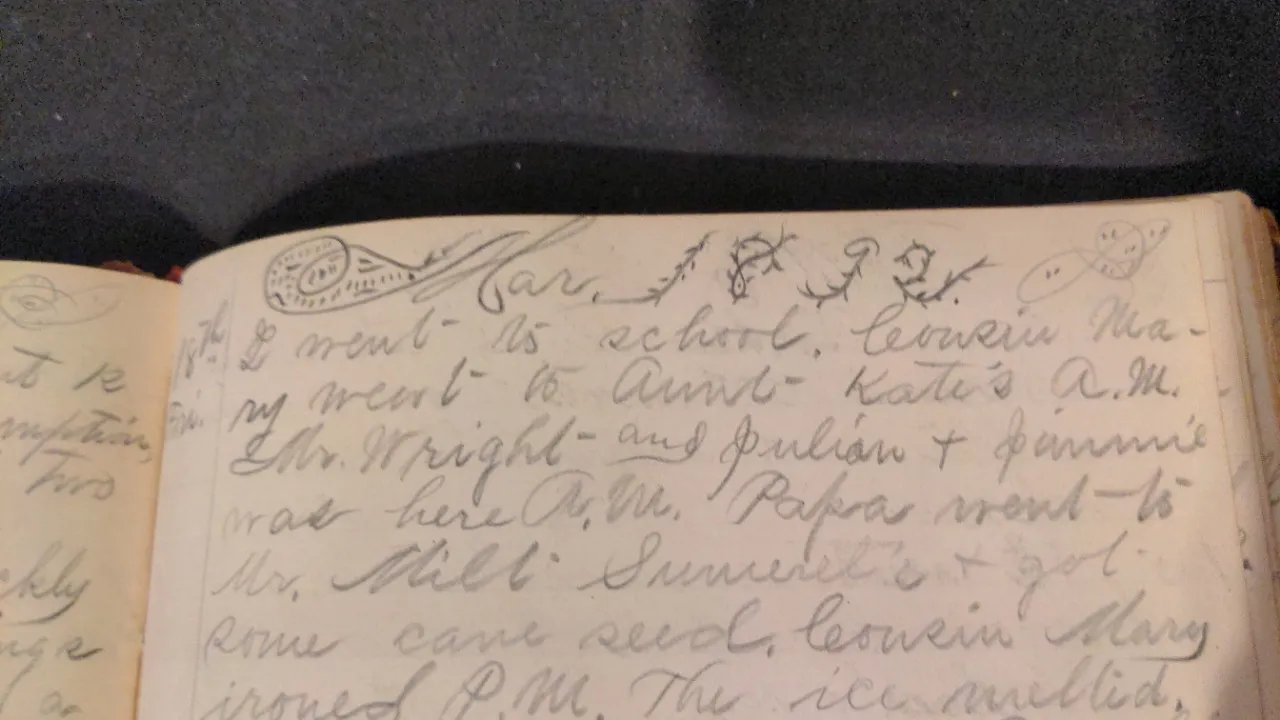 Mar. 1892.
18th I went to school. Cousin Ma-
Fri. ry went to Aunt Kate's A.M.
Mr. Wright and Julian + Jimmie
was here A.M. Papa went to
Mr. Milt + got
some cane seed. Cousin Mary
ironed P.M. The ice melted.
two